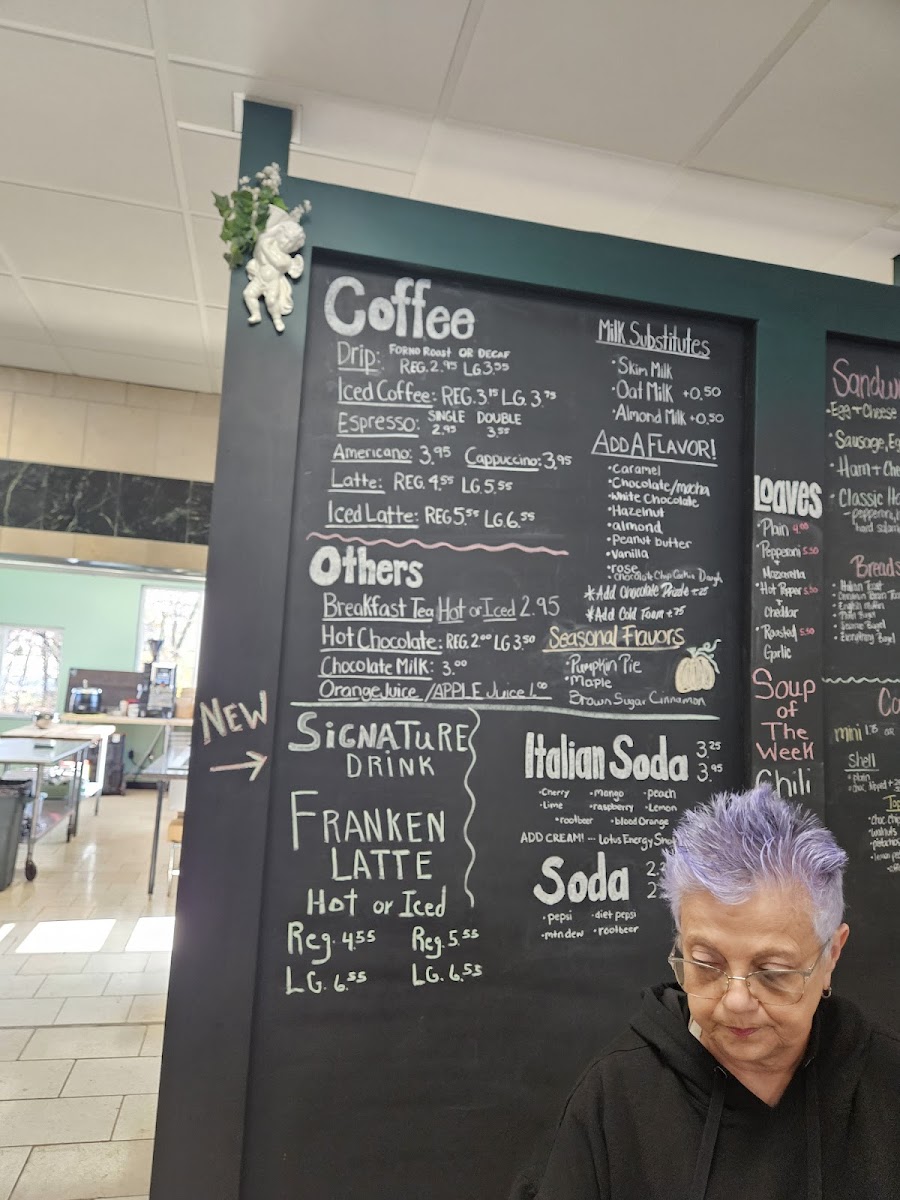 Coffee
Drip: FORNO ROAST OR DECAF
REG. 2.95 LG 3.55
Iced Coffee: REG. 3.15 LG. 3.75
Espresso: SINGLE DOUBLE
2.95 3.55
Americano: 3.95 Cappuccino: 3.95
Latte: REG. 4.55 LG. 5.55
Iced Latte: REG 5.55 LG. 6.55
Others
Breakfast Tea Hot or Iced 2.95
Hot Chocolate: REG. 2.00 LG 3.50
Chocolate Milk: 3.00
Orange Juice / APPLE Juice 1.00
NEW
SIGNATURE
DRINK
FRANKEN
LATTE
Hot or Iced
Reg. 4.55 Reg. 5.55
LG. 6.55 LG. 6.55
Milk Substitutes
• Skim Milk
• Oat Milk +0.50
• Almond Milk +0.50
ADD A FLAVOR!
• Caramel
• Chocolate/mocha
• White Chocolate
• Hazelnut
• almond
• Peanut butter
• Vanilla
• rose
• Chocolate Chip Cookie Dough
*Add Chocolate
*Add Cold Foam +.75
Seasonal Flavors
• Pumpkin Pie
• Maple
Brown Sugar Cinnamon
Italian Soda 3.25
3.95
• Cherry • Mango • peach
• Lime • raspberry • Lemon
• rootbeer • blood Orange
ADD CREAM! -- Lotus Energy
Soda 2.
2
• pepsi • diet pepsi
• mtn dew • rootbeer
Loaves
• Plain
• Pepperoni 5.50
+
Mozzarella
• Hot Pepper 5.50
+
cheddar
• Roasted 5.50
Garlic
Soup
of
The
Week
Chili
Sandw
• Egg + Cheese
• Sausage, Eg
• Ham + Che
• Classic Ha
• pepperoni,
hard salam
Breads
• Italian Toast
• Cinnamon Raisin
• English Muffin
• Plain Bagel
• Sesame Bagel
• Everything Bagel
mini
Shell
• plain
• choc. dipped
• choc chip
• walnuts
• pistachios